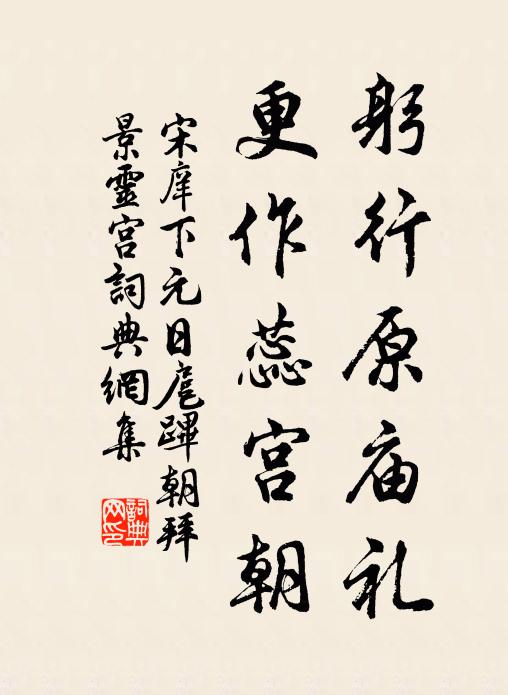 躬行原庙礼
更作蕊宫朝
宋庠下元日扈蹕朝拜
景靈宫詞典網集
詞典网印